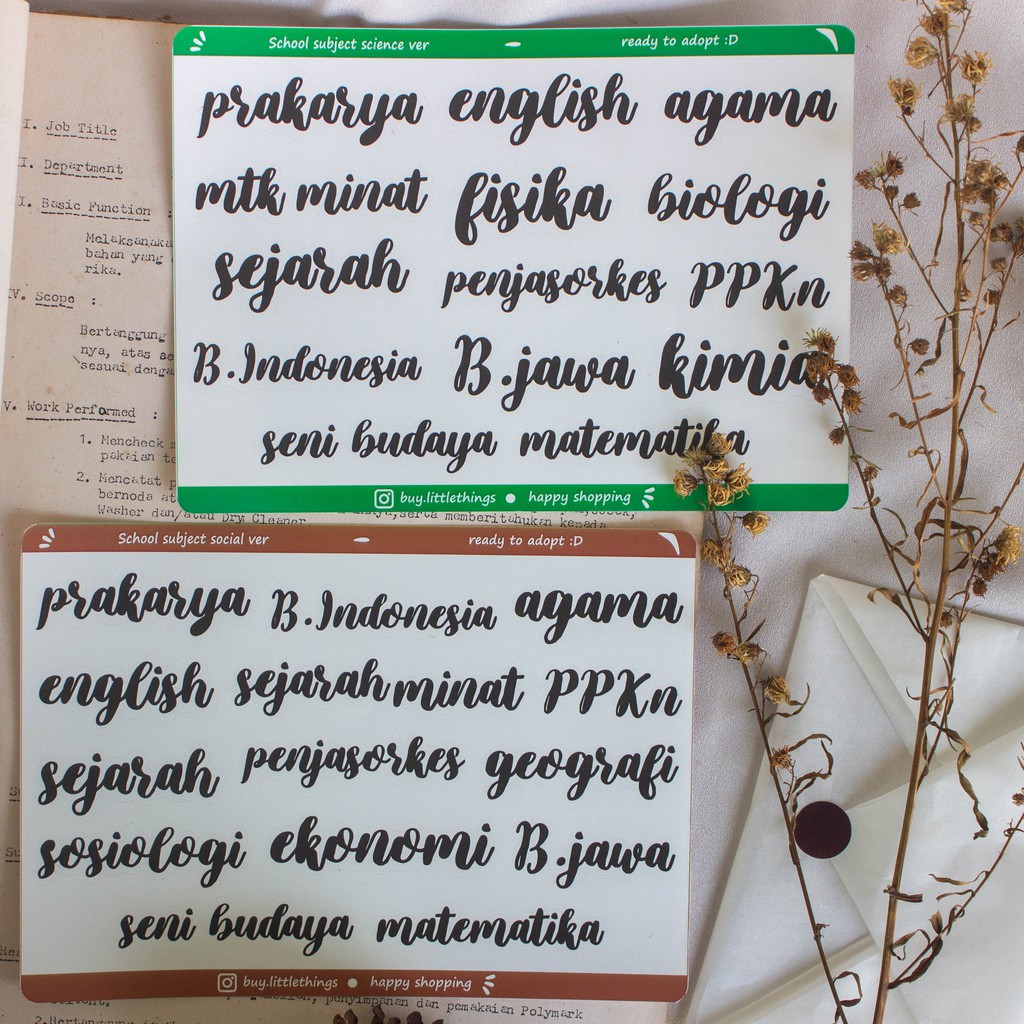 School subject science ver
ready to adopt :D
prakarya english agama
mtk minat fisika biologi
sejarah penjasorkes PPKn
B.Indonesia B.jawa kimia
seni budaya matematika
buy.littlethings ● happy shopping
School subject social ver
ready to adopt :D
prakarya B.Indonesia agama
english sejarah minat PPKn
sejarah penjasorkes geografi
sosiologi ekonomi B.jawa
seni budaya matematika
buy.littlethings ● happy shopping
I. Job Title
I. Department
I. Basic Function :
Melaksanaka
bahan yang
rika.
IV. Scope :
Bertanggung
nya, atas
sesuai denga
V. Work Performed :
1. Mencheck
pakaian
2. Mencatat
bernoda at
Washer dan/atau Dry Cleaner
serta memberitahukan kepada
penyimpanan dan pemakaian Polymark